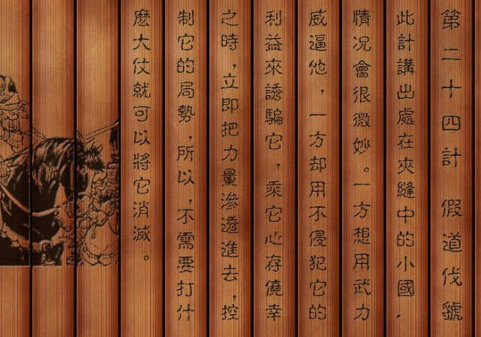 第二十四計 假道伐虢
此計講出處在夾縫中的小國，
情況會很微妙。一方想用武力
威逼他，一方却用不侵犯它的
利益來誘騙它，乘它心存僥幸
之時，立即把力量滲透進去，控
制它的局勢，所以，不需要打什
麽大仗就可以將它消滅。